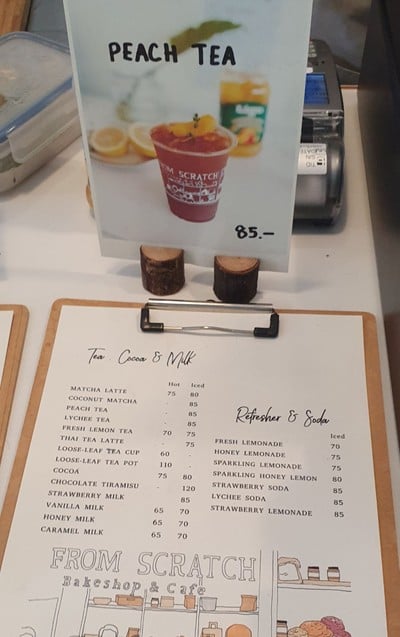 PEACH TEA
FROM SCRATCH
85.-
Tea Cocoa & Milk
Hot Iced
MATCHA LATTE 75 80
COCONUT MATCHA . 85
PEACH TEA . 85
LYCHEE TEA . 85
FRESH LEMON TEA 70 75
THAI TEA LATTE . 75
LOOSE-LEAF TEA CUP 60 .
LOOSE-LEAF TEA POT 110 .
COCOA 75 80
CHOCOLATE TIRAMISU . 120
STRAWBERRY MILK . 85
VANILLA MILK 65 70
HONEY MILK 65 70
CARAMEL MILK 65 70
Refresher & Soda
Iced
FRESH LEMONADE 70
HONEY LEMONADE 75
SPARKLING LEMONADE 75
SPARKLING HONEY LEMON 80
STRAWBERRY SODA 85
LYCHEE SODA 85
STRAWBERRY LEMONADE 85
FROM SCRATCH
Bakeshop & Cafe